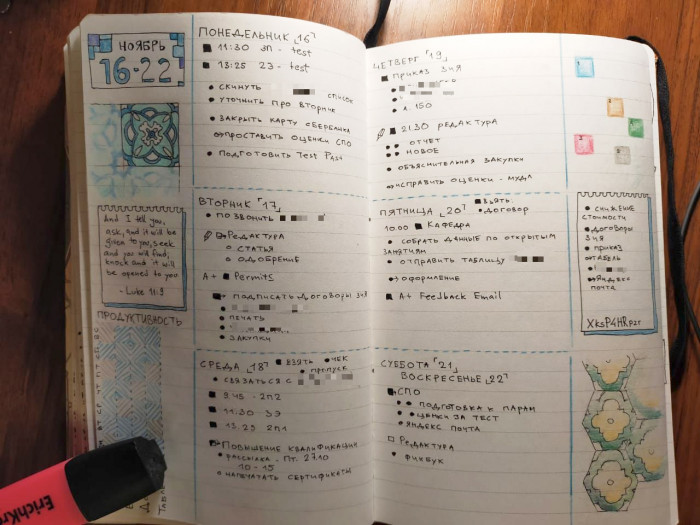 НОЯБРЬ
16-22
And I tell you,
ask, and it will be
given to you, seek
and you will find,
knock and it will
be opened to you
- Luke 11:9
ПРОДУКТИВНОСТЬ
ПОНЕДЕЛЬНИК 16
11:30 ЗП - test
13:25 23 - test
СКИНУТЬ СПИСОК
УТОЧНИТЬ ПРО ВТОРНИК
ЗАКРЫТЬ КАРТУ СБЕРБАНКА
ПРОСТАВИТЬ ОЦЕНКИ СПО
ПОДГОТОВИТЬ Test Pass
ВТОРНИК 17
ПОЗВОНИТЬ
РЕДАКТУРА
СТАТЬЯ
ОДОБРЕНИЕ
A+ Permits
ПОДПИСАТЬ ДОГОВОРЫ ЗИЯ
ПЕЧАТЬ
ЗАКУПКИ
СРЕДА 18 ВЗЯТЬ ЧЕК
ПРОПУСК
СВЯЗАТЬСЯ С
9:45 - 2П2
11:30 ЗЭ
13:25 2П1
ПОВЫШЕНИЕ КВАЛИФИКАЦИИ
РАССЫЛКА. ПТ. 27.10
10-15
НАПЕЧАТАТЬ СЕРТИФИКАТЫ
ЧЕТВЕРГ 19
ПРИКАЗ ЗИЯ
1.150
21:30 РЕДАКТУРА
ОТЧЕТ
НОВОЕ
ОБЪЯСНИТЕЛЬНАЯ ЗАКУПКИ
ИСПРАВИТЬ ОЦЕНКИ - МХДЛ
ПЯТНИЦА 20 ВЗЯТЬ:
ДОГОВОР
10:00 КАФЕДРА
СОБРАТЬ ДАННЫЕ ПО ОТКРЫТЫМ
ЗАНЯТИЯМ
ОТПРАВИТЬ ТАБЛИЦУ
ОФОРМЛЕНИЕ
A+ Feedback Email
СУББОТА 21
ВОСКРЕСЕНЬЕ 22
СПО
ПОДГОТОВКА К ПАРАМ
ОЦЕНКИ ЗА ТЕСТ
ЯНДЕКС ПОЧТА
РЕДАКТУРА
ФИКБУК
СНИЖЕНИЕ
СТОИМОСТИ
ДОГОВОРЫ
ЗИЯ
ПРИКАЗ
ТАБЕЛЬ
ЯНДЕКС
ПОЧТА
XKsP4HRp2T
ErichKr